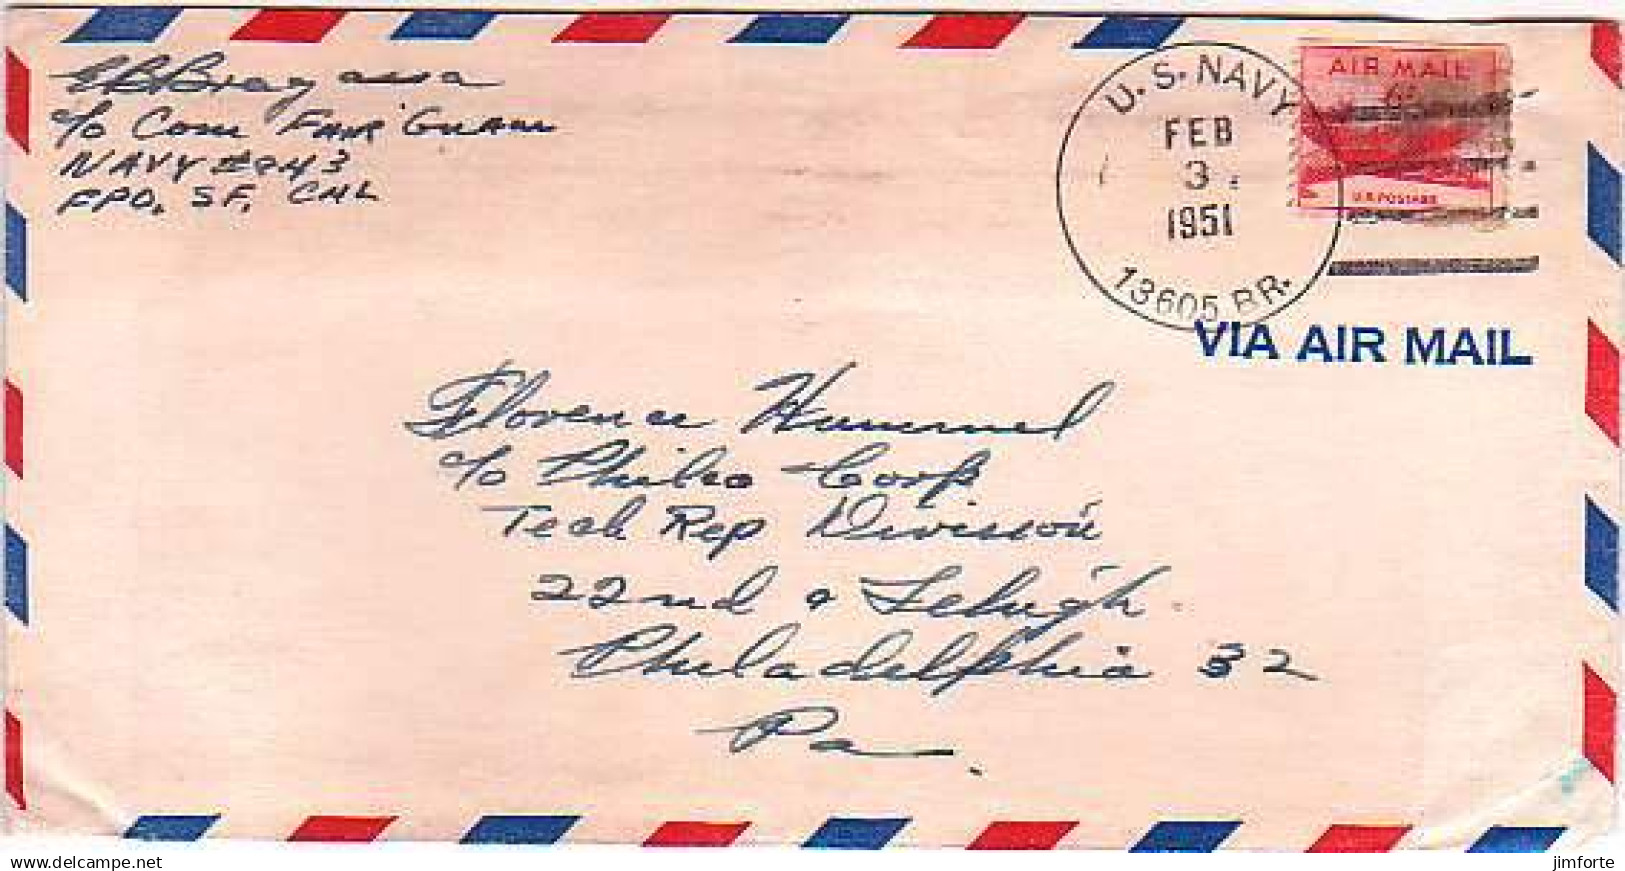 EB Bragassa
c/o Com Fair Guam
NAVY #943
FPO, SF, CAL
U.S. NAVY
FEB
3
1951
13605 BR.
AIR MAIL
6¢
U.S. POSTAGE
VIA AIR MAIL
Florence Hummel
c/o Philco Corp
Tech Rep Division
22nd & Lehigh
Philadelphia 32
Pa.
www.delcampe.net
jimforte